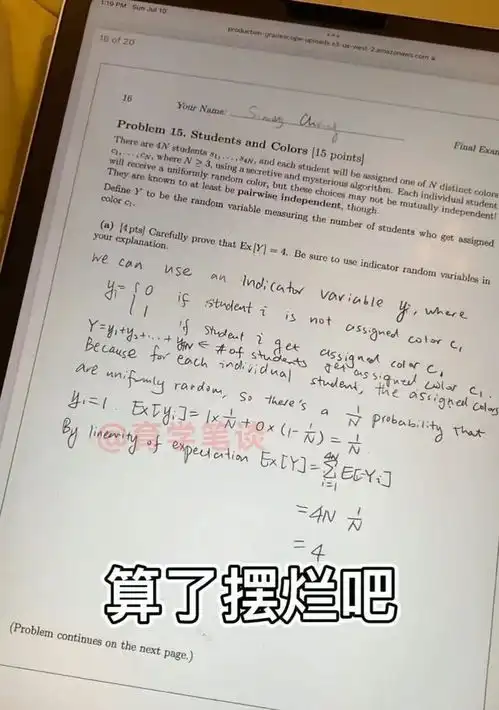 1:19 PM Sun Jul 10
production-gradescope-uploads.s3-us-west-2.amazonaws.com
16 of 20
16
Your Name:
Final Exam
Problem 15. Students and Colors [15 points]
There are 4N students s₁, . . . , s₄N, and each student will be assigned one of N distinct colors
c₁, . . . , cN, where N ≥ 3, using a secretive and mysterious algorithm. Each individual student
will receive a uniformly random color, but these choices may not be mutually independent!
They are known to at least be pairwise independent, though.
Define Y to be the random variable measuring the number of students who get assigned
color c₁.
(a) [4pts] Carefully prove that Ex[Y] = 4. Be sure to use indicator random variables in
your explanation.
We can use an indicator variable yᵢ, where
yᵢ = { 0 if student i is not assigned color c₁
1 if student i get assigned color c₁
Y = y₁+y₂+...+y₄N ← # of students get assigned color c₁.
Because for each individual student, the assigned colors
are uniformly random, so there's a 1/N probability that
yᵢ=1. Ex[yᵢ] = 1×1/N + 0×(1-1/N) = 1/N
@育学笔谈
By linearity of expectation Ex[Y] = Σᵢ₌₁⁴ᴺ E[Yᵢ]
= 4N 1/N
= 4
算了摆烂吧
(Problem continues on the next page.)